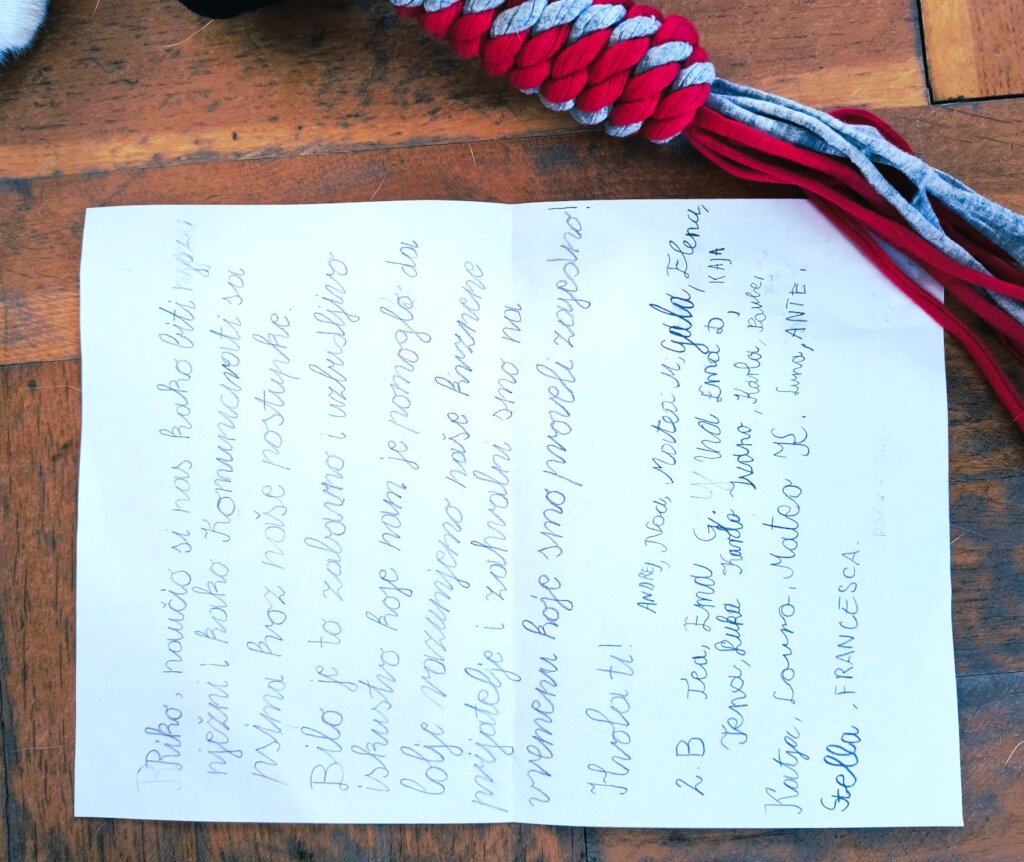 Riko, naučio si nas kako biti
nježni i kako Komunicirati sa
psima kroz naše postupke.
Bilo je to zabavno i uzbudljivo
iskustvo koje nam je pomoglo da
bolje razumijemo naše krznene
prijatelje i zahvalni smo na
vremenu koje smo proveli zajedno!
Hvala ti!
ANDREJ, Noa, Mateá M, Gala, Elena,
2. B Tea, Ema G. Y Una Ema D, KAJA
Jena, Luka Karlo Ivano, Karla,
Katja, Lovro, Mateo K. Luna, ANTE.
Stella, FRANCESCA.